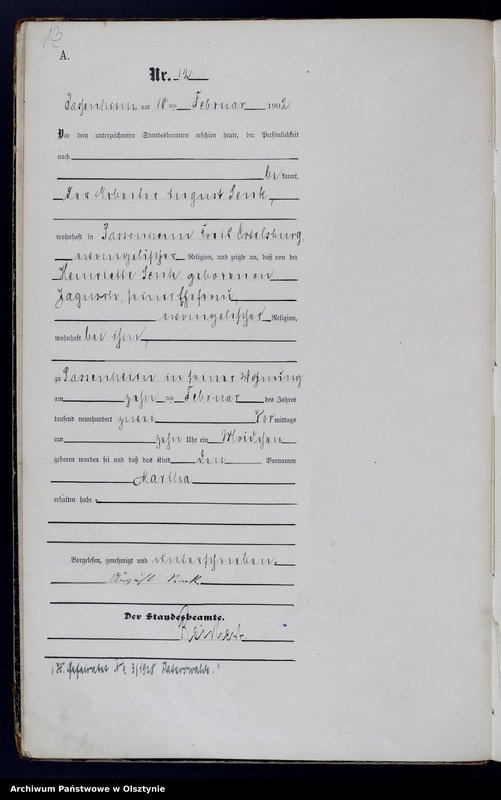 13
A.
Nr. 12
Passenheim am 10 ten Februar 1902.
Vor dem unterzeichneten Standesbeamten erschien heute, der Persönlichkeit
nach
be kannt,
Der Arbeiter August Senk,
wohnhaft in Passenheim Kreis Ortelsburg,
evangelischer Religion, und zeigte an, daß von der
Henriette Senk geborenen
Jagusch, seiner Ehefrau,
evangelischer Religion,
wohnhaft bei ihm,
zu Passenheim in seiner Wohnung
am zehn ten Februar des Jahres
tausend neunhundert zwei Vor mittags
um zehn Uhr ein Mädchen
geboren worden sei und daß das Kind den Vornamen
Martha
erhalten habe.
Vorgelesen, genehmigt und unterschrieben.
August Senk
Der Standesbeamte.
Geheiratet Nr. 3/1928
Archiwum Państwowe w Olsztynie